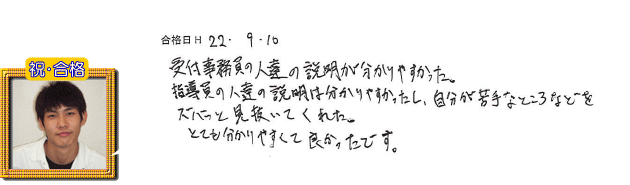 合格日 H 22. 9.10
祝・合格
受付事務員の人達の説明が分かりやすかった。
指導員の人達の説明は分かりやすかったし、自分が苦手なところなどを
ズバッと見抜いてくれた。
とても分かりやすくて良かったです。